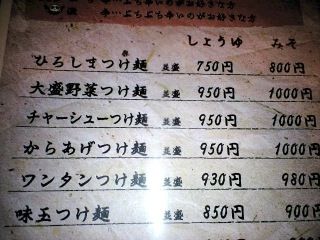 辛…よちよち辛いのがお好きな方
しょうゆ みそ
ひろしまつけ麺 並盛 750円 800円
大盛野菜つけ麺 並盛 950円 1000円
チャーシューつけ麺 並盛 950円 1000円
からあげつけ麺 並盛 950円 1000円
ワンタンつけ麺 並盛 930円 980円
味玉つけ麺 並盛 850円 900円